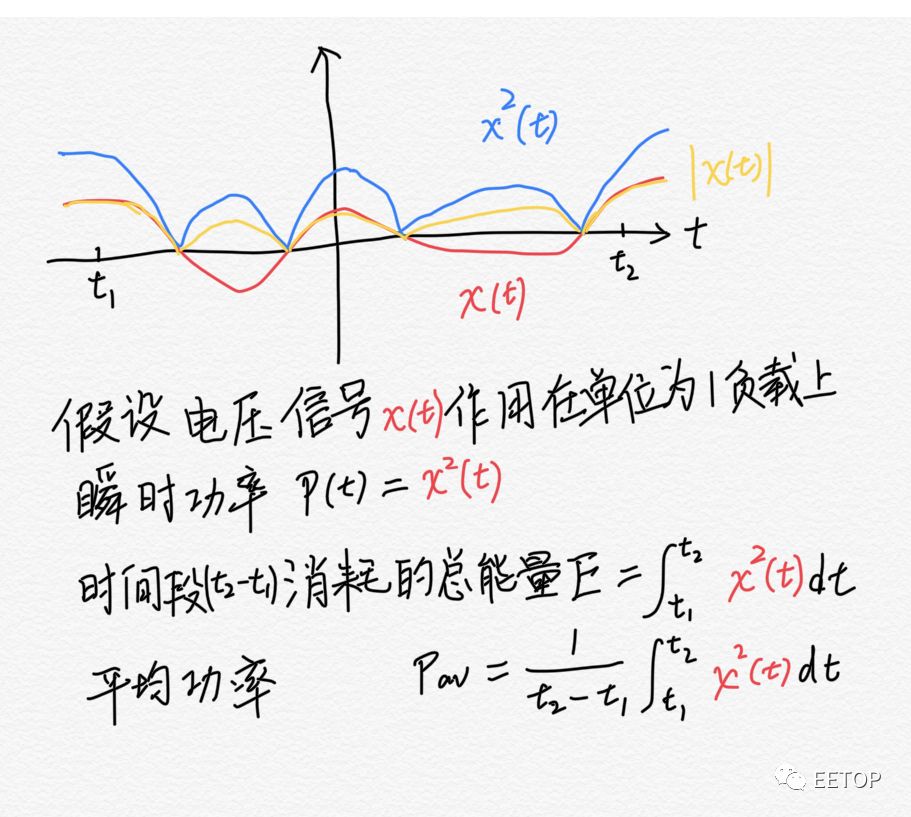 x²(t)
|x(t)|
t
t₁
t₂
x(t)
假设电压信号x(t)作用在单位为1负载上
瞬时功率 P(t) = x²(t)
时间段(t₂-t₁)消耗的总能量E = ∫_{t₁}^{t₂} x²(t)dt
平均功率 Pav = \frac{1}{t₂-t₁} ∫_{t₁}^{t₂} x²(t)dt
EETOP